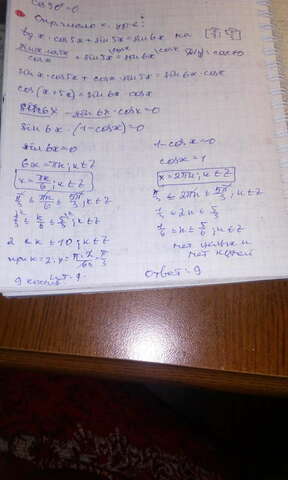 Cos90°=0
tg x · cos5x + sin5x = sin6x на [π/3; 5π/3]
sinx·cos5x/cosx + sin5x = sin6x
cosx≠0
sinx·cos5x + cosx·sin5x = sin6x·cosx
cos(x+5x) = sin6x·cosx
sin6x - sin6x·cosx=0
sin6x·(1-cosx)=0
sin6x=0
6x=πk; k∈Z
x=πk/6; k∈Z
π/3 ≤ πk/6 ≤ 5π/3; k∈Z
2 ≤ k ≤ 10; k∈Z
9 корней
1-cosx=0
cosx=1
x=2πn; n∈Z
π/3 ≤ 2πn ≤ 5π/3
1/3 ≤ 2n ≤ 5/3
1/6 ≤ n ≤ 5/6; n∈Z
нет целых n
нет корней
Ответ: 9